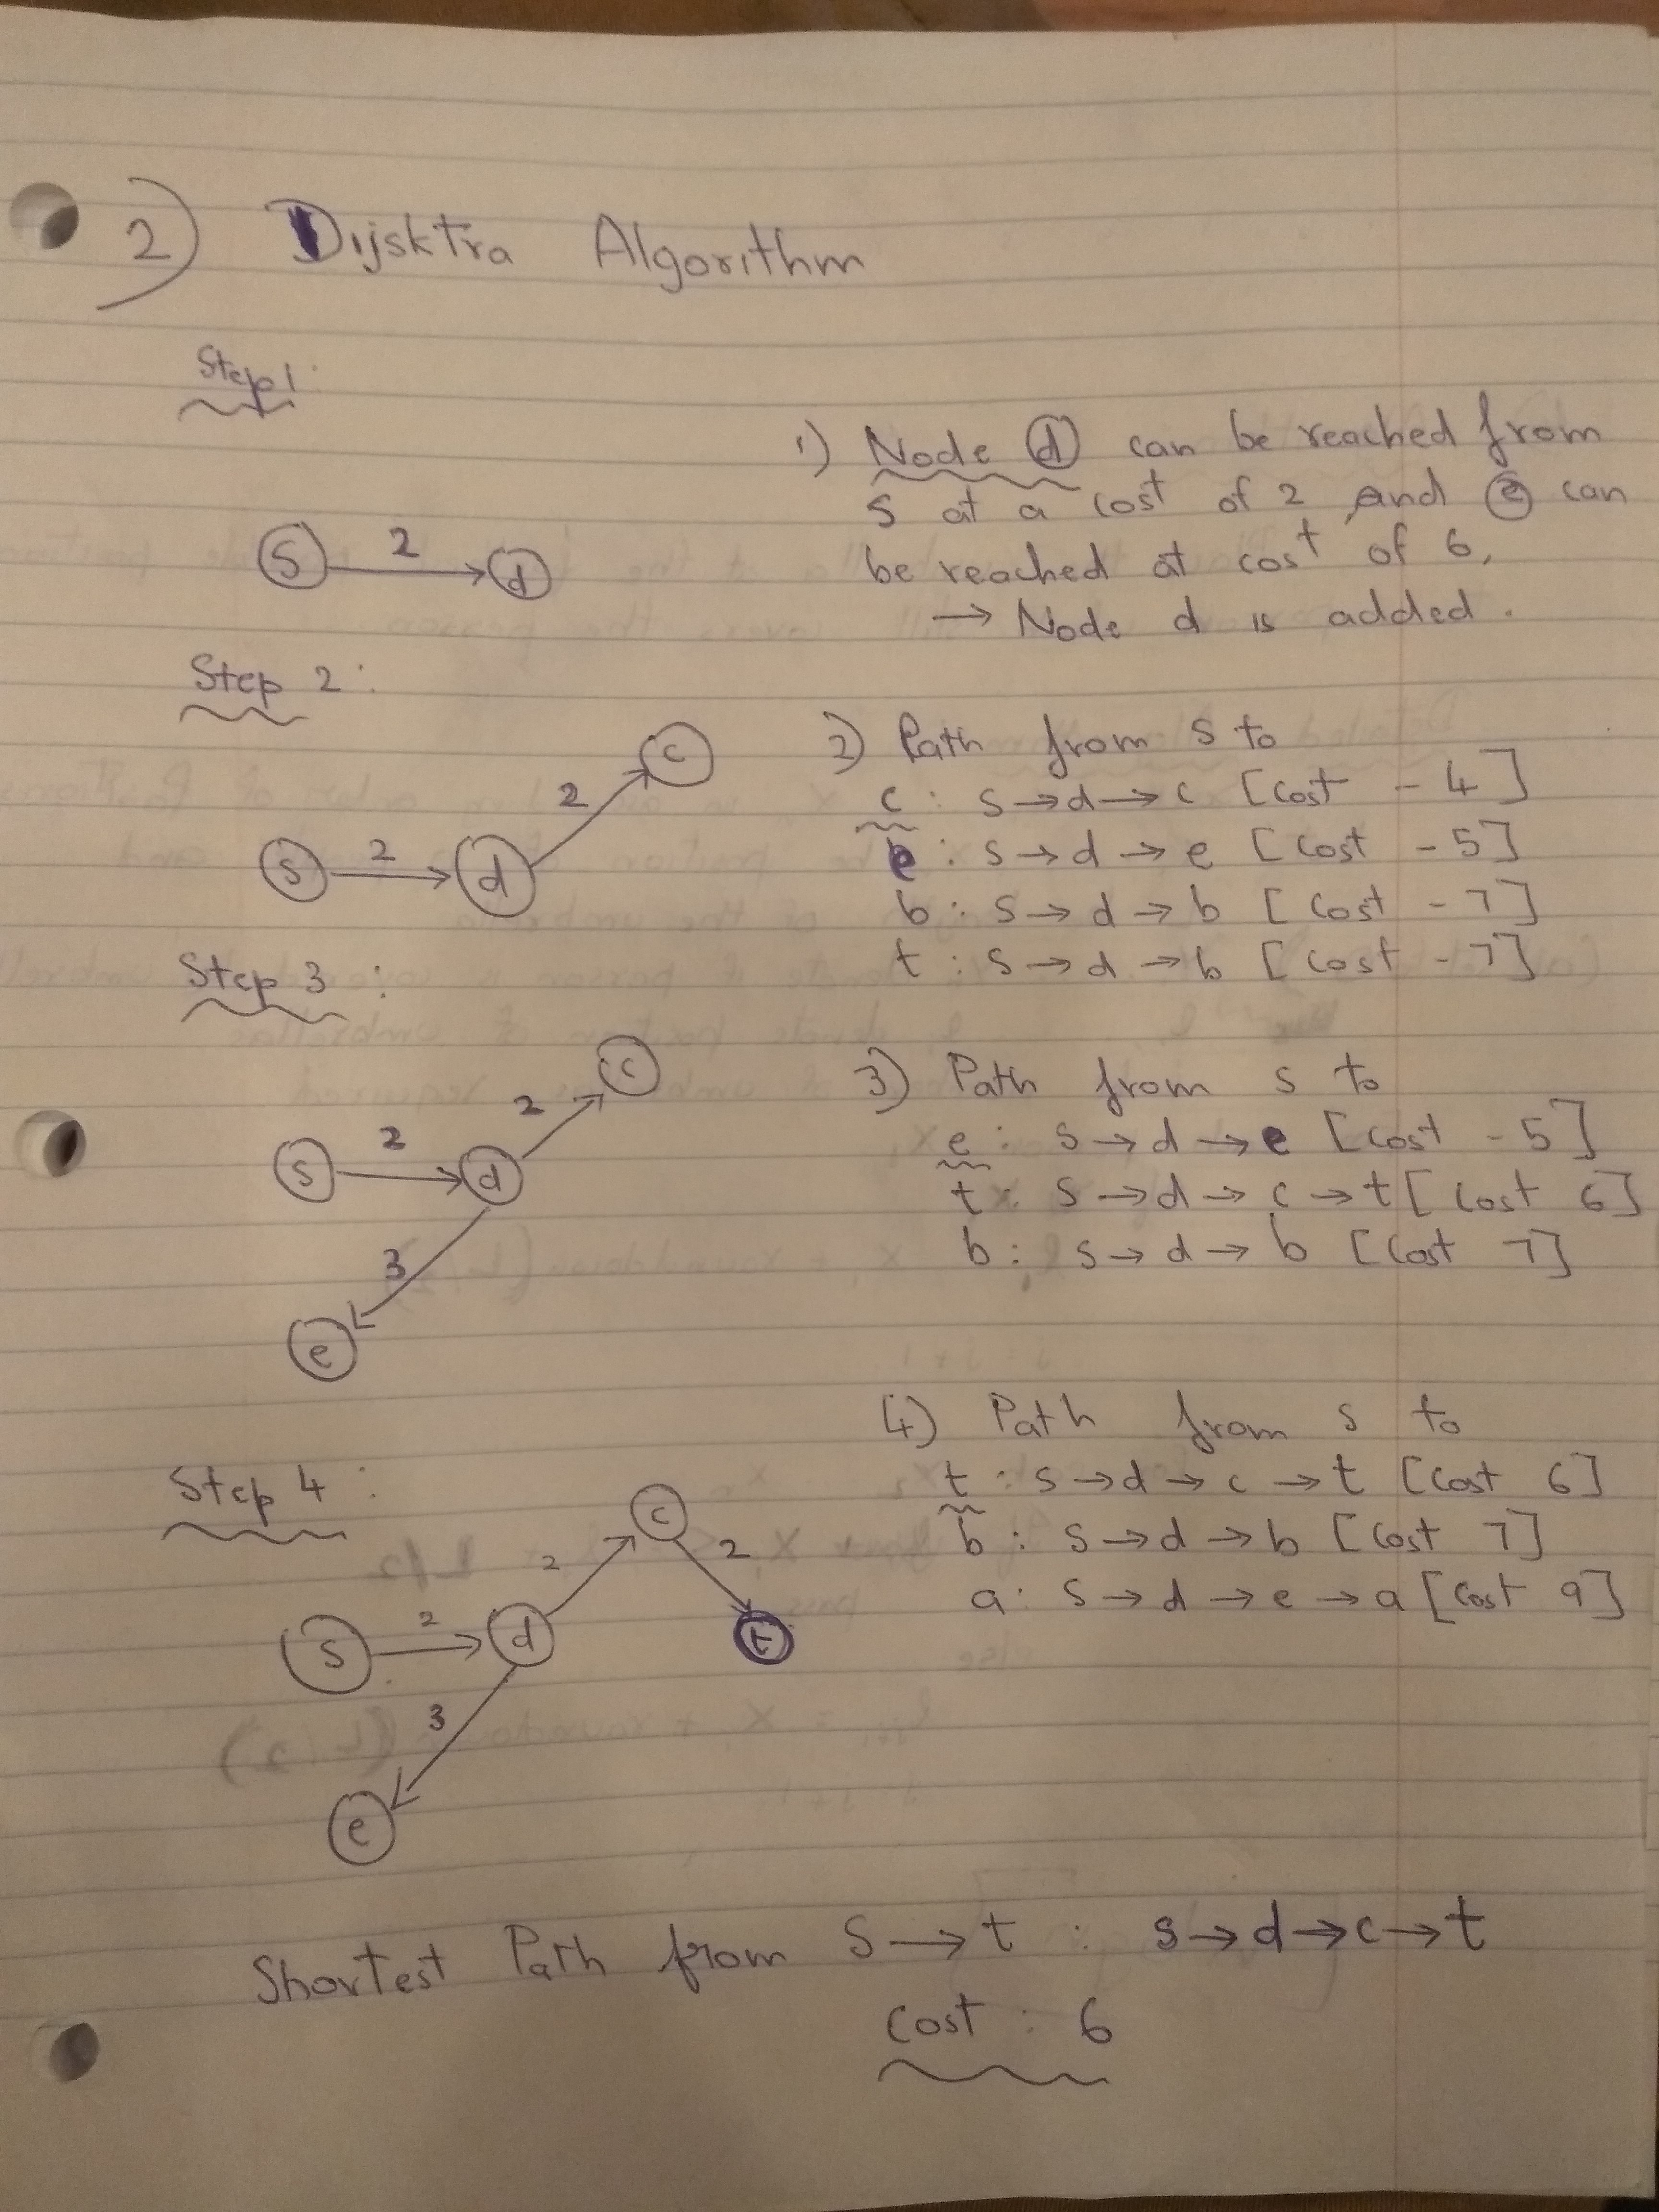 2) Dijsktra Algorithm
Step 1
1) Node d can be reached from
s at a cost of 2 and e can
be reached at cost of 6,
→ Node d is added.
S 2 d
Step 2 :
2) Path from s to
c : s → d → c [cost - 4]
e : s → d → e [cost - 5]
b : s → d → b [cost - 7]
t : s → d → b [cost - 7]
S 2 d 2 c
Step 3 :
3) Path from s to
e : s → d → e [cost - 5]
t : s → d → c → t [cost 6]
b : s → d → b [cost 7]
S 2 d 2 c
3
e
Step 4 :
4) Path from s to
t : s → d → c → t [cost 6]
b : s → d → b [cost 7]
a : s → d → e → a [cost 9]
S 2 d 2 c 2 t
3
e
Shortest Path from S → t : s → d → c → t
cost : 6